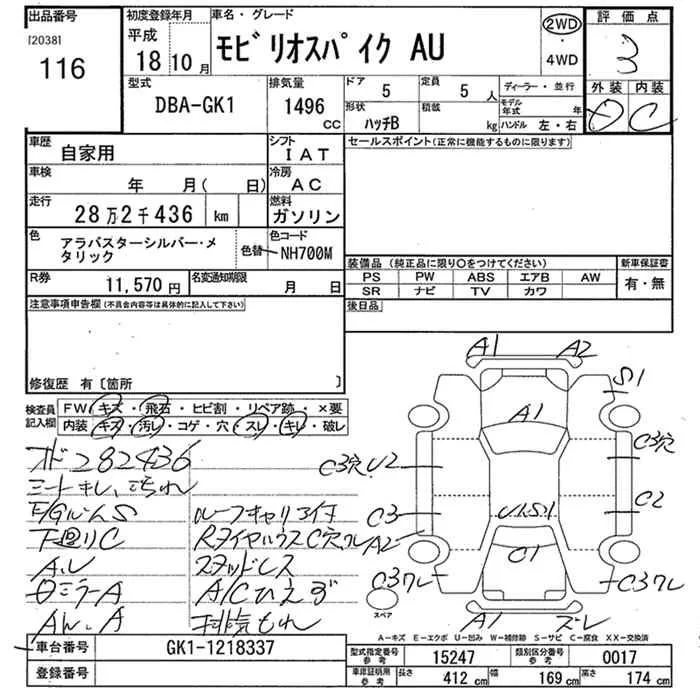 出品番号
[2038]
116
初度登録年月
平成
18 10 月
車名・グレード
モビリオスパイク AU
2WD
・
4WD
評価点
3
外装 内装
D C
型式
DBA-GK1
排気量
1496
CC
ドア
5
定員
5 人
形状
ハッチB
積載
kg
ディーラー・並行
モデル年式 年
ハンドル 左・右
車歴
自家用
シフト
IAT
車検
年 月( 日)
冷房
AC
走行
28万2千436 km
燃料
ガソリン
色
アラバスターシルバー・メタリック
色替
色コード
NH700M
R券
11,570 円
名変通知期限
月 日
セールスポイント(正常に機能するものに限ります)
装備品(純正品に限り○をつけてください)
PS PW ABS エアB AW
SR ナビ TV カワ
新車保証書
有・無
後日品
注意事項申告欄(不具合内容等は具体的に記入して下さい)
修復歴 有〔箇所 〕
検査員記入欄
FW キズ・飛石・ヒビ割・リペア跡・×要
内装 キズ・汚レ・コゲ・穴・スレ・キレ・破レ
オド282436
シートキレ、汚れ
F/GルームS
下回りC
ルーフキャリアイキ
スタッドレス
A/Cひえず
排気もれ
A1 A2
S1
A1
C3穴 U2
C3穴
C3
C2
A2
C1
C3ワレ
C3ワレ
スペア
A1 ズレ
A-キズ E-エクボ U-凹み W-補修跡 S-サビ C-腐食 XX-交換済
車台番号
GK1-1218337
登録番号
型式指定番号
参考
15247
類別区分番号
参考
0017
車庫証明用
参考
長さ
412 cm
幅
169 cm
高さ
174 cm